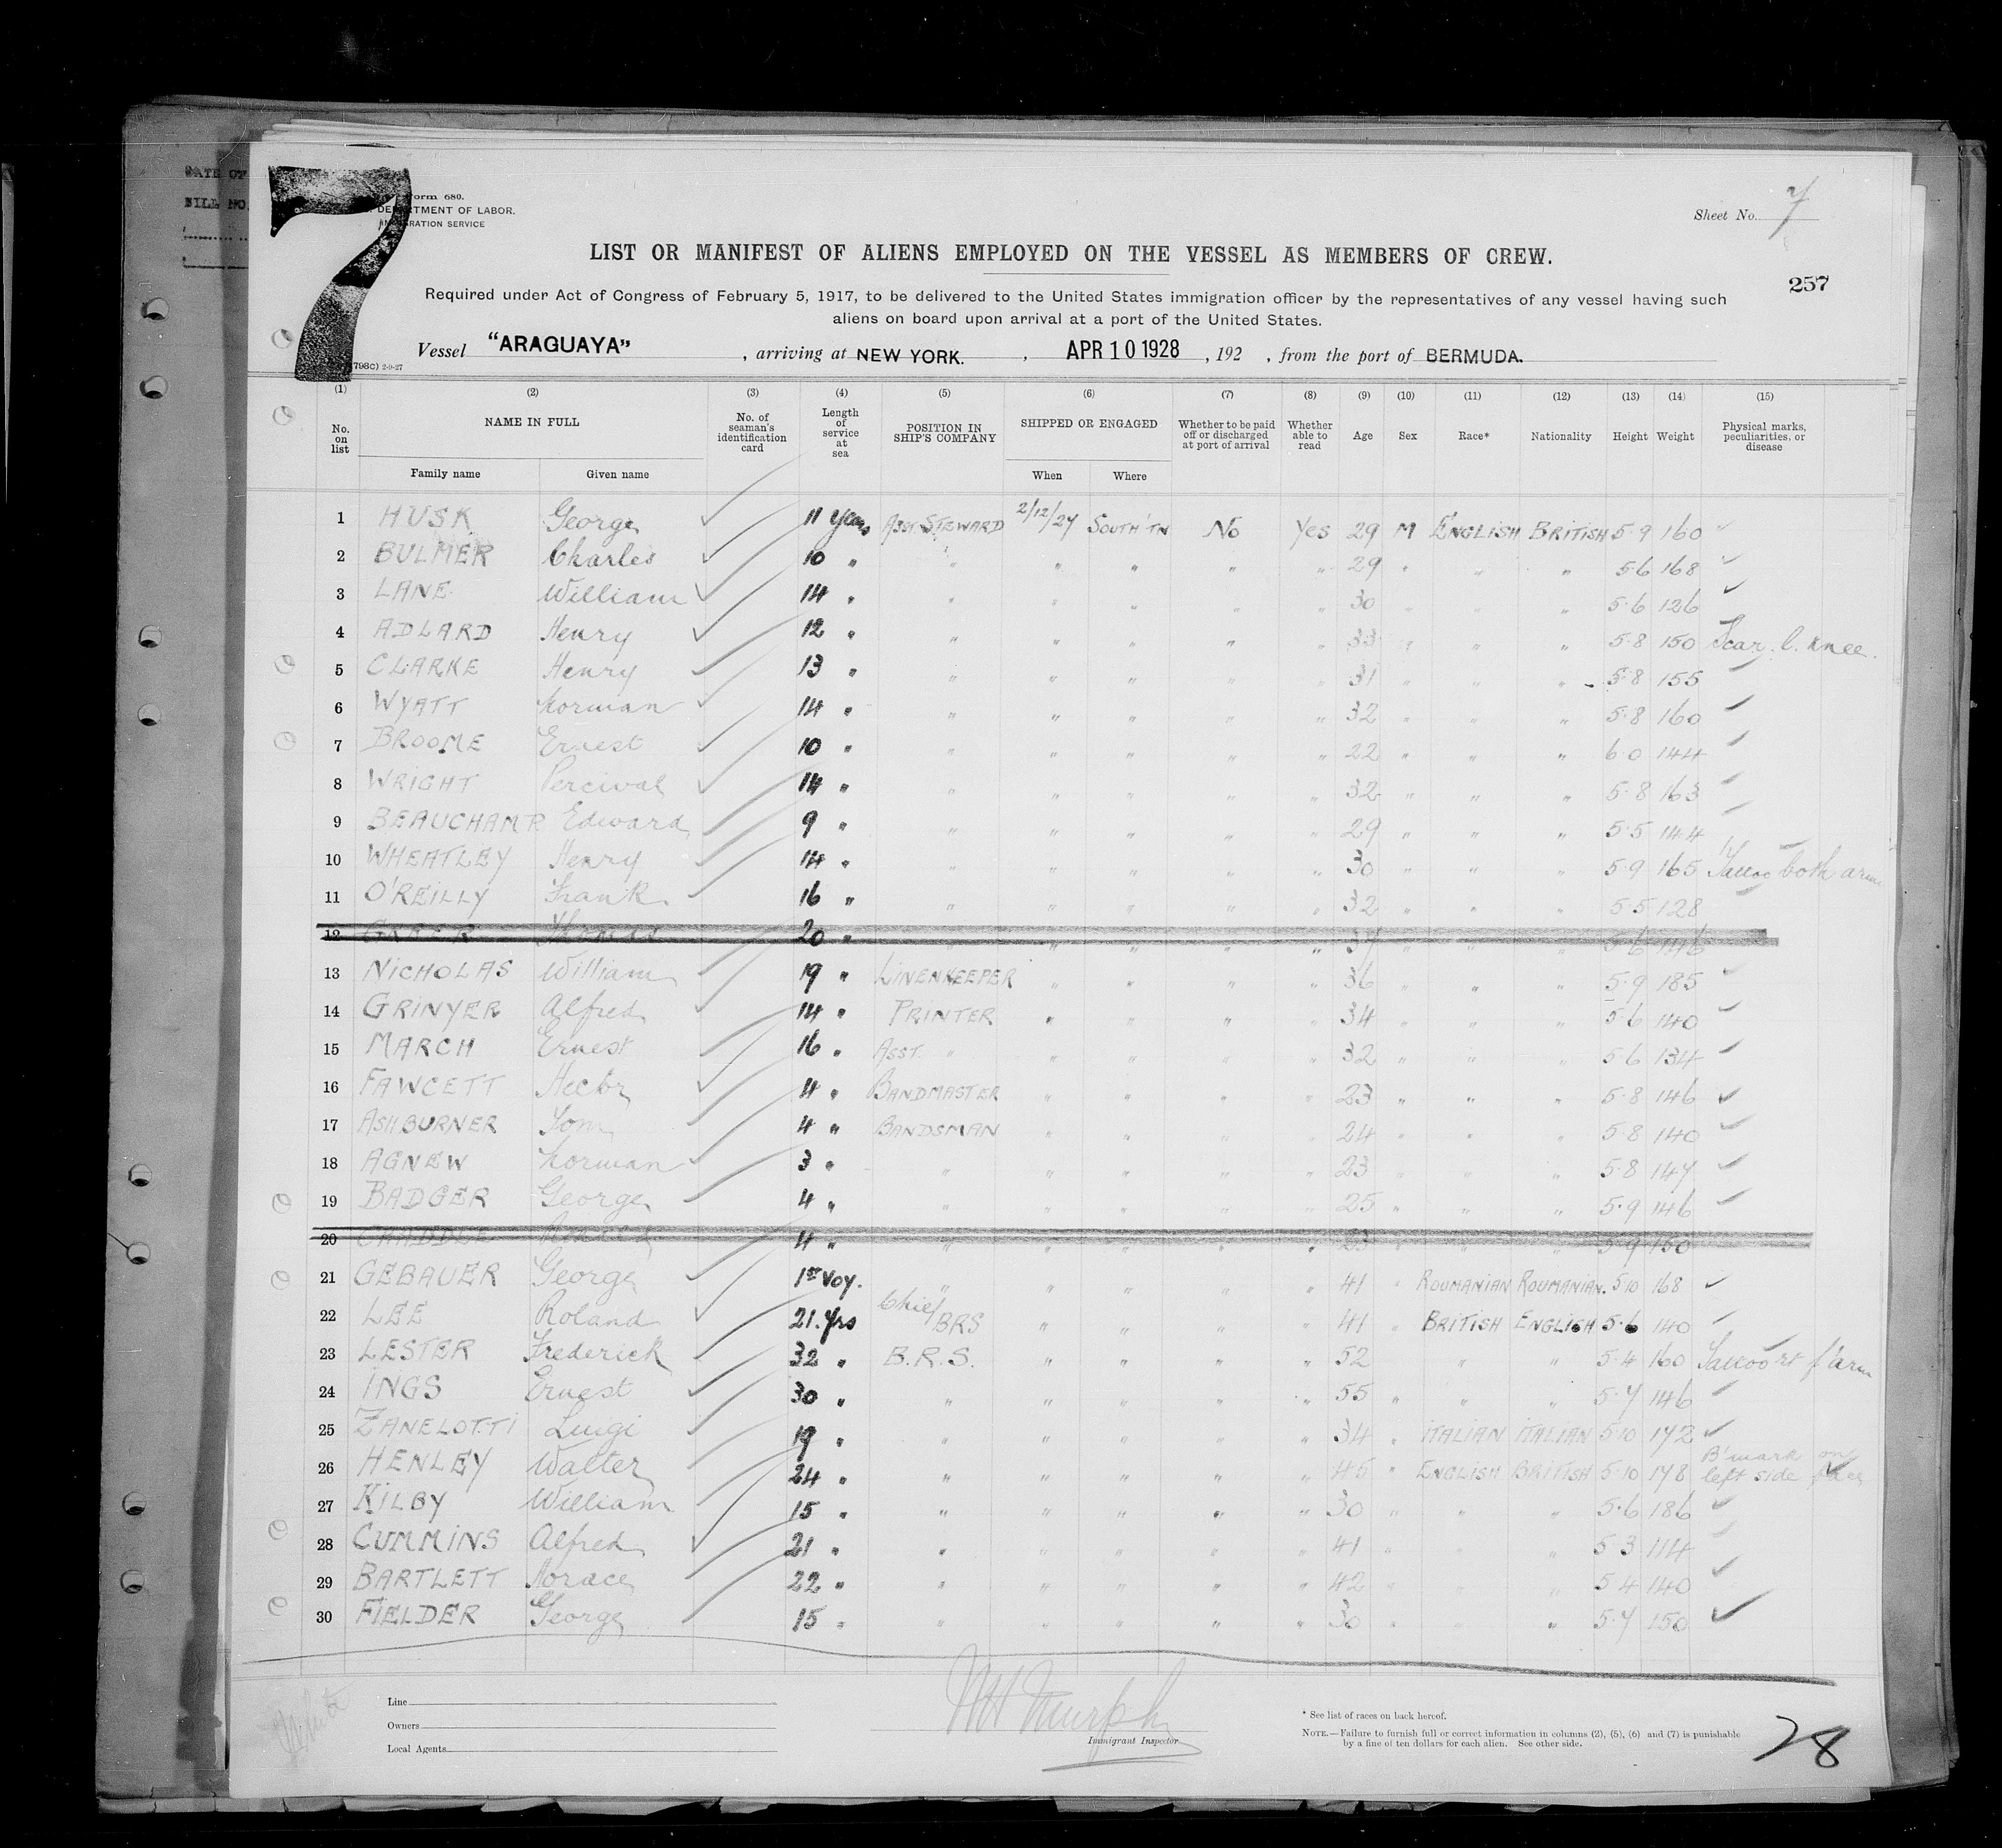 DATE OF
FILL NO.
7
Form 680.
DEPARTMENT OF LABOR.
IMMIGRATION SERVICE
Sheet No. 7
LIST OR MANIFEST OF ALIENS EMPLOYED ON THE VESSEL AS MEMBERS OF CREW.
257
Required under Act of Congress of February 5, 1917, to be delivered to the United States immigration officer by the representatives of any vessel having such
aliens on board upon arrival at a port of the United States.
Vessel "ARAGUAYA" , arriving at NEW YORK. , APR 10 1928 , 192 , from the port of BERMUDA.
798C) 2-9-27
(1) (2) (3) (4) (5) (6) (7) (8) (9) (10) (11) (12) (13) (14) (15)
No. on list NAME IN FULL No. of seaman's identification card Length of service at sea POSITION IN SHIP'S COMPANY SHIPPED OR ENGAGED Whether to be paid off or discharged at port of arrival Whether able to read Age Sex Race* Nationality Height Weight Physical marks, peculiarities, or disease
Family name Given name When Where
1 HUSK George 11 years ASST. STEWARD 2/12/27 SOUTH'TN No Yes 29 M ENGLISH BRITISH 5·9 160
2 BULMER Charles 10 " " " " " " 29 " " " 5·6 168
3 LANE William 14 " " " " " " 30 " " " 5·6 126
4 ADLARD Henry 12 " " " " " " 33 " " " 5·8 150 Scar. l. knee.
5 CLARKE Henry 13 " " " " " " 31 " " " 5·8 155
6 WYATT Norman 14 " " " " " " 32 " " " 5·8 160
7 BROOME Ernest 10 " " " " " " 22 " " " 6·0 144
8 WRIGHT Percival 14 " " " " " " 32 " " " 5·8 163
9 BEAUCHAMP Edward 9 " " " " " " 29 " " " 5·5 144
10 WHEATLEY Henry 14 " " " " " " 30 " " " 5·9 165 Tattoo both arms
11 O'REILLY Frank 16 " " " " " " 32 " " " 5·5 128
12 Thomas 20 " " " " " " 37 " " " 5·6 146
13 NICHOLAS William 19 " LINENKEEPER " " " " 36 " " " 5·9 185
14 GRINYER Alfred 14 " PRINTER " " " " 34 " " " 5·6 140
15 MARCH Ernest 16 " ASST. " " " " " 32 " " " 5·6 134
16 FAWCETT Hector 4 " BANDMASTER " " " " 23 " " " 5·8 146
17 ASHBURNER Tom 4 " BANDSMAN " " " " 24 " " " 5·8 140
18 AGNEW Norman 3 " " " " " " 23 " " " 5·8 147
19 BADGER George 4 " " " " " " 25 " " " 5·9 146
20 4 " " " " " " 23 " " " 5·9 150
21 GEBAUER George 1st Voy. " " " " " 41 " ROUMANIAN ROUMANIAN. 5·10 168
22 LEE Roland 21. yrs Chief BRS " " " " 41 " BRITISH ENGLISH 5·6 140
23 LESTER Frederick 32 " B.R.S. " " " " 52 " " 5·4 160 Tattoo rt f'arm
24 INGS Ernest 30 " " " " " " 55 " " " 5·7 146
25 ZANELOTTI Luigi 19 " " " " " " 34 " ITALIAN ITALIAN 5·10 172
26 HENLEY Walter 24 " " " " " " 45 " ENGLISH BRITISH 5·10 178 B'mark on left side face
27 KILBY William 15 " " " " " " 30 " " " 5·6 186
28 CUMMINS Alfred 21 " " " " " " 41 " " " 5·3 114
29 BARTLETT Horace 22 " " " " " " 42 " " " 5·4 140
30 FIELDER George 15 " " " " " " 30 " " " 5·7 150
Line
Owners
Local Agents
Murphy
Immigrant Inspector
* See list of races on back hereof.
NOTE.—Failure to furnish full or correct information in columns (2), (5), (6) and (7) is punishable
by a fine of ten dollars for each alien. See other side.
28